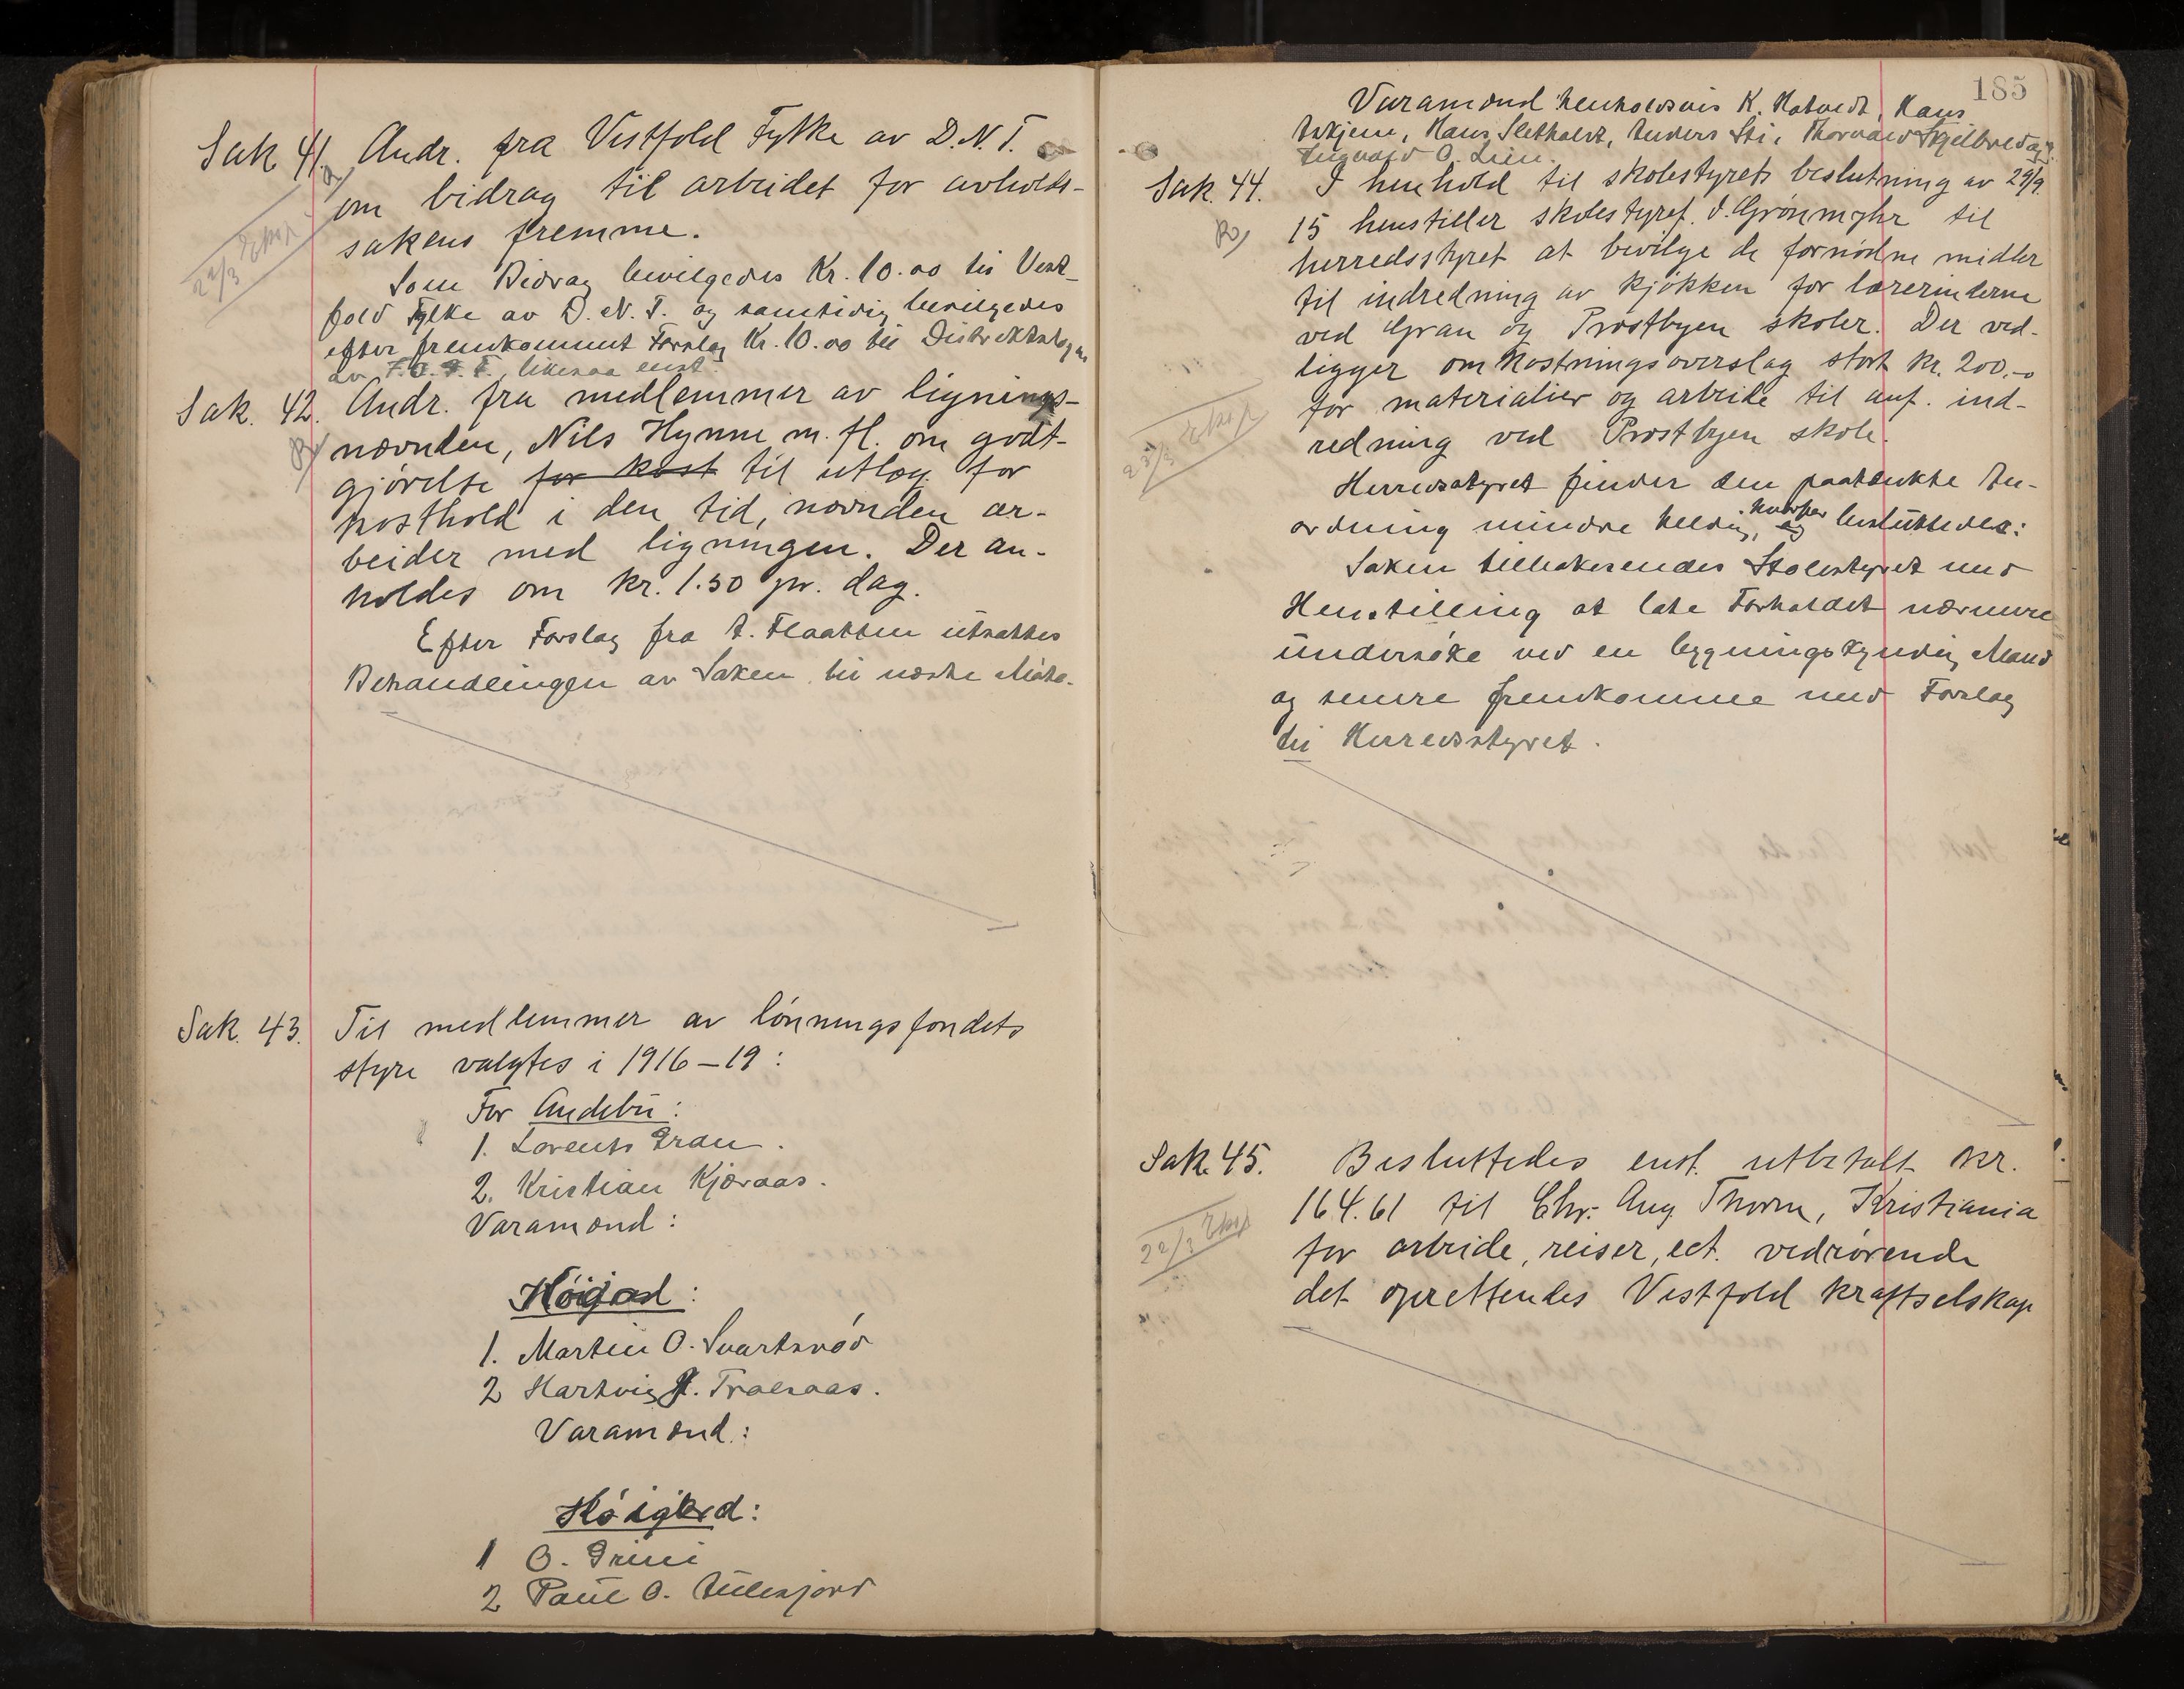 Sak 41. Andr. fra Vestfold Fylke av D.N.T.
om bidrag til arbeidet for avholds-
sakens fremme.
22/3 Eksp
Som Bidrag bevilgedes Kr. 10.00 til Vest-
fold Fylke av D.N.T. og samtidig bevilgedes
efter fremkommet Forslag Kr. 10.00 til Distriktslogen
av I.O.G.T., likesaa enst.
Sak. 42. Andr. fra medlemmer av lignings-
nævnden, Nils Hynne m. fl. om godt-
gjörelse for kost til utlæg for
kosthold i den tid, nævnden ar-
beider med ligningen. Der an-
holdes om kr. 1.50 pr. dag.
Efter Forslag fra A. Flaatten utsattes
Behandlingen av Saken til næste Möte.
Sak. 43. Til medlemmer av lönningsfondets
styre valgtes i 1916–19:
For Andebu:
1. Lorents Gran.
2. Kristian Kjæraas.
Varamænd:
Höijord:
1. Martin O. Svartsrød
2 Hartvig J. Trolsaas.
Varamænd:
Höijord:
1 O. Grini
2 Paul O. Aulesjord
185
Varamænd henholdsvis K. Hotvedt, Hans
Askjem, Hans Sletholdt, Anders Sti, Thorvald Skjelbred og
Ingvald O. Lien.
Sak. 44. I henhold til skolestyrets beslutning av 29/9
15 henstiller skolestyref. J. Grönmyhr til
herredsstyret at bevilge de fornödne midler
til indredning av kjökken for lærerinderne
ved Gran og Prestbyen skoler. Der ved-
ligger omkostningsoverslag stort kr. 200.-
for materialier og arbeide til anf. ind-
redning ved Prestbyen skole.
23/3 Eksp
Herredsstyret finder den paatænkte An-
ordning mindre heldig, og hvorfor besluttedes:
Saken tilbakesendes Skolestyret med
Henstilling at late Forholdet nærmere
undersöke ved en bygningskyndig Mand
og senere fremkomme med Forslag
til Herredsstyret.
Sak. 45. Besluttedes enst. utbetalt kr.
164.61 til Chr. Aug. Thorne, Kristiania
for arbeide, reiser, ect. vedrörende
det oprettendes Vestfold kraftselskap
22/3 Eksp